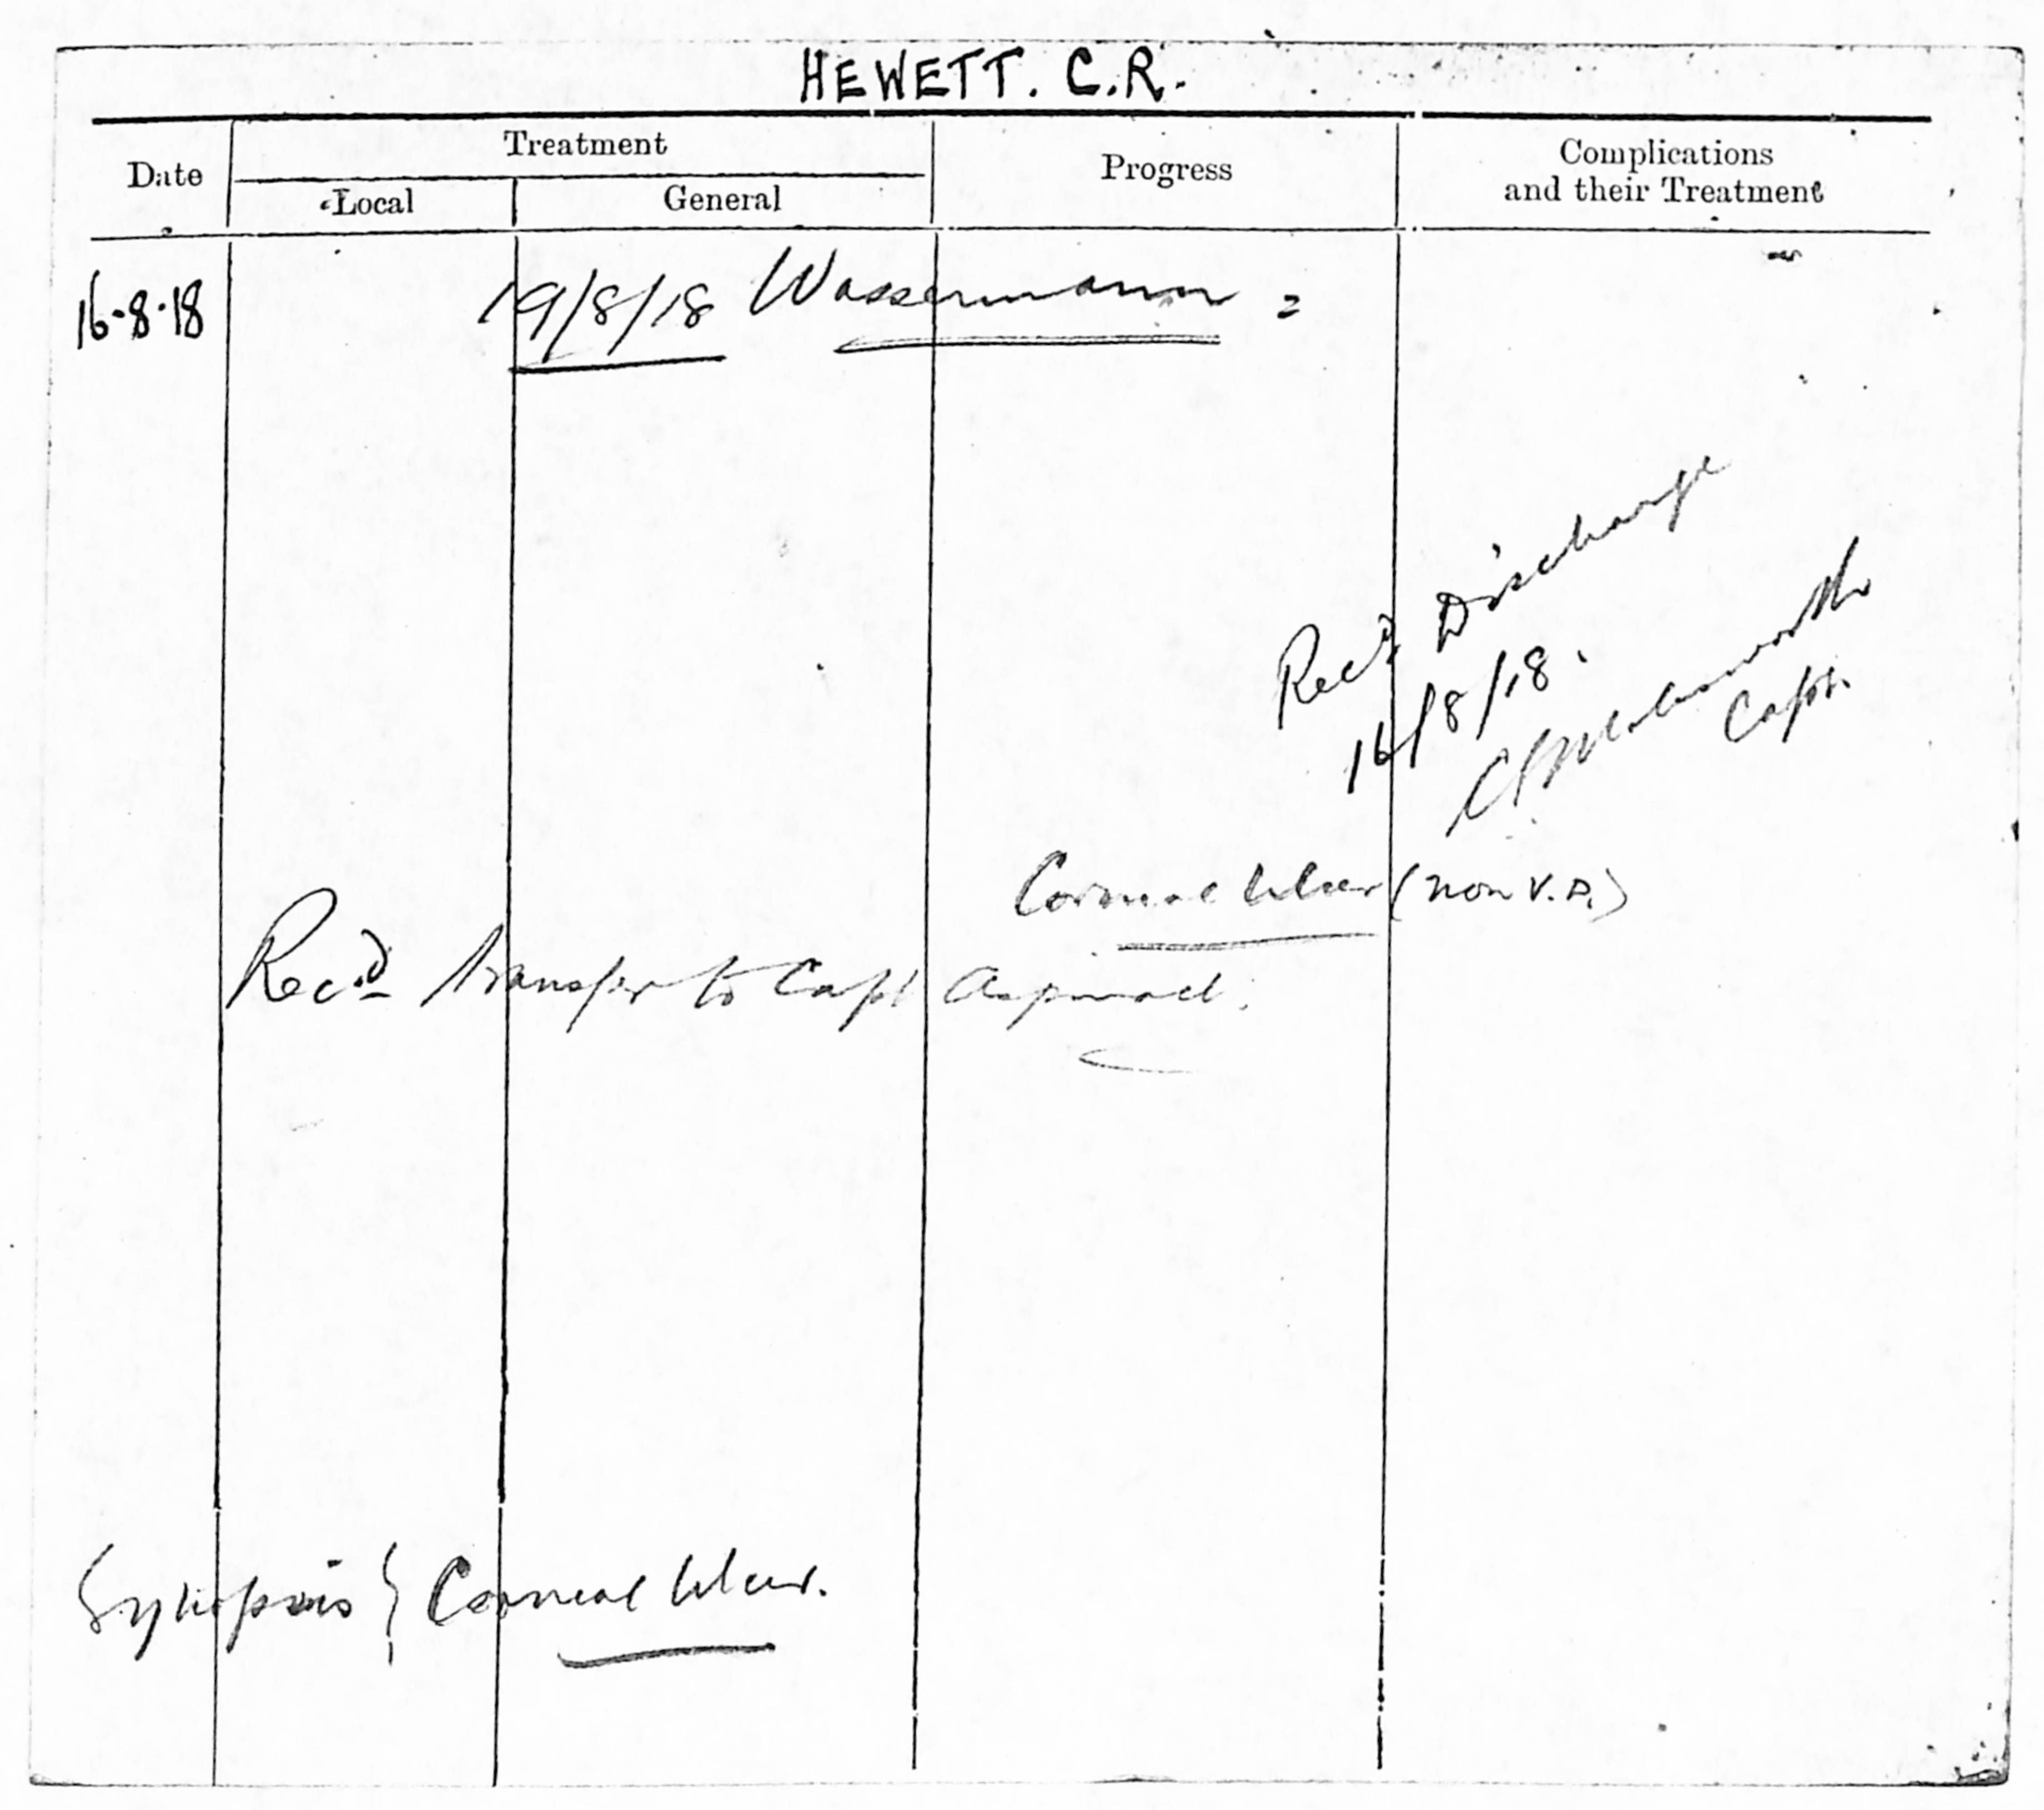 HEWETT. C.R.
Date
Treatment
Local
General
Progress
Complications
and their Treatment
16-8-18
19/8/18 Wassermann =
Rec'd Discharge
16/8/18.
Capt.
Corneal Ulcer (non V.D.)
Rec'd transfer to Capt Aspinall.
Synopsis } Corneal Ulcer.